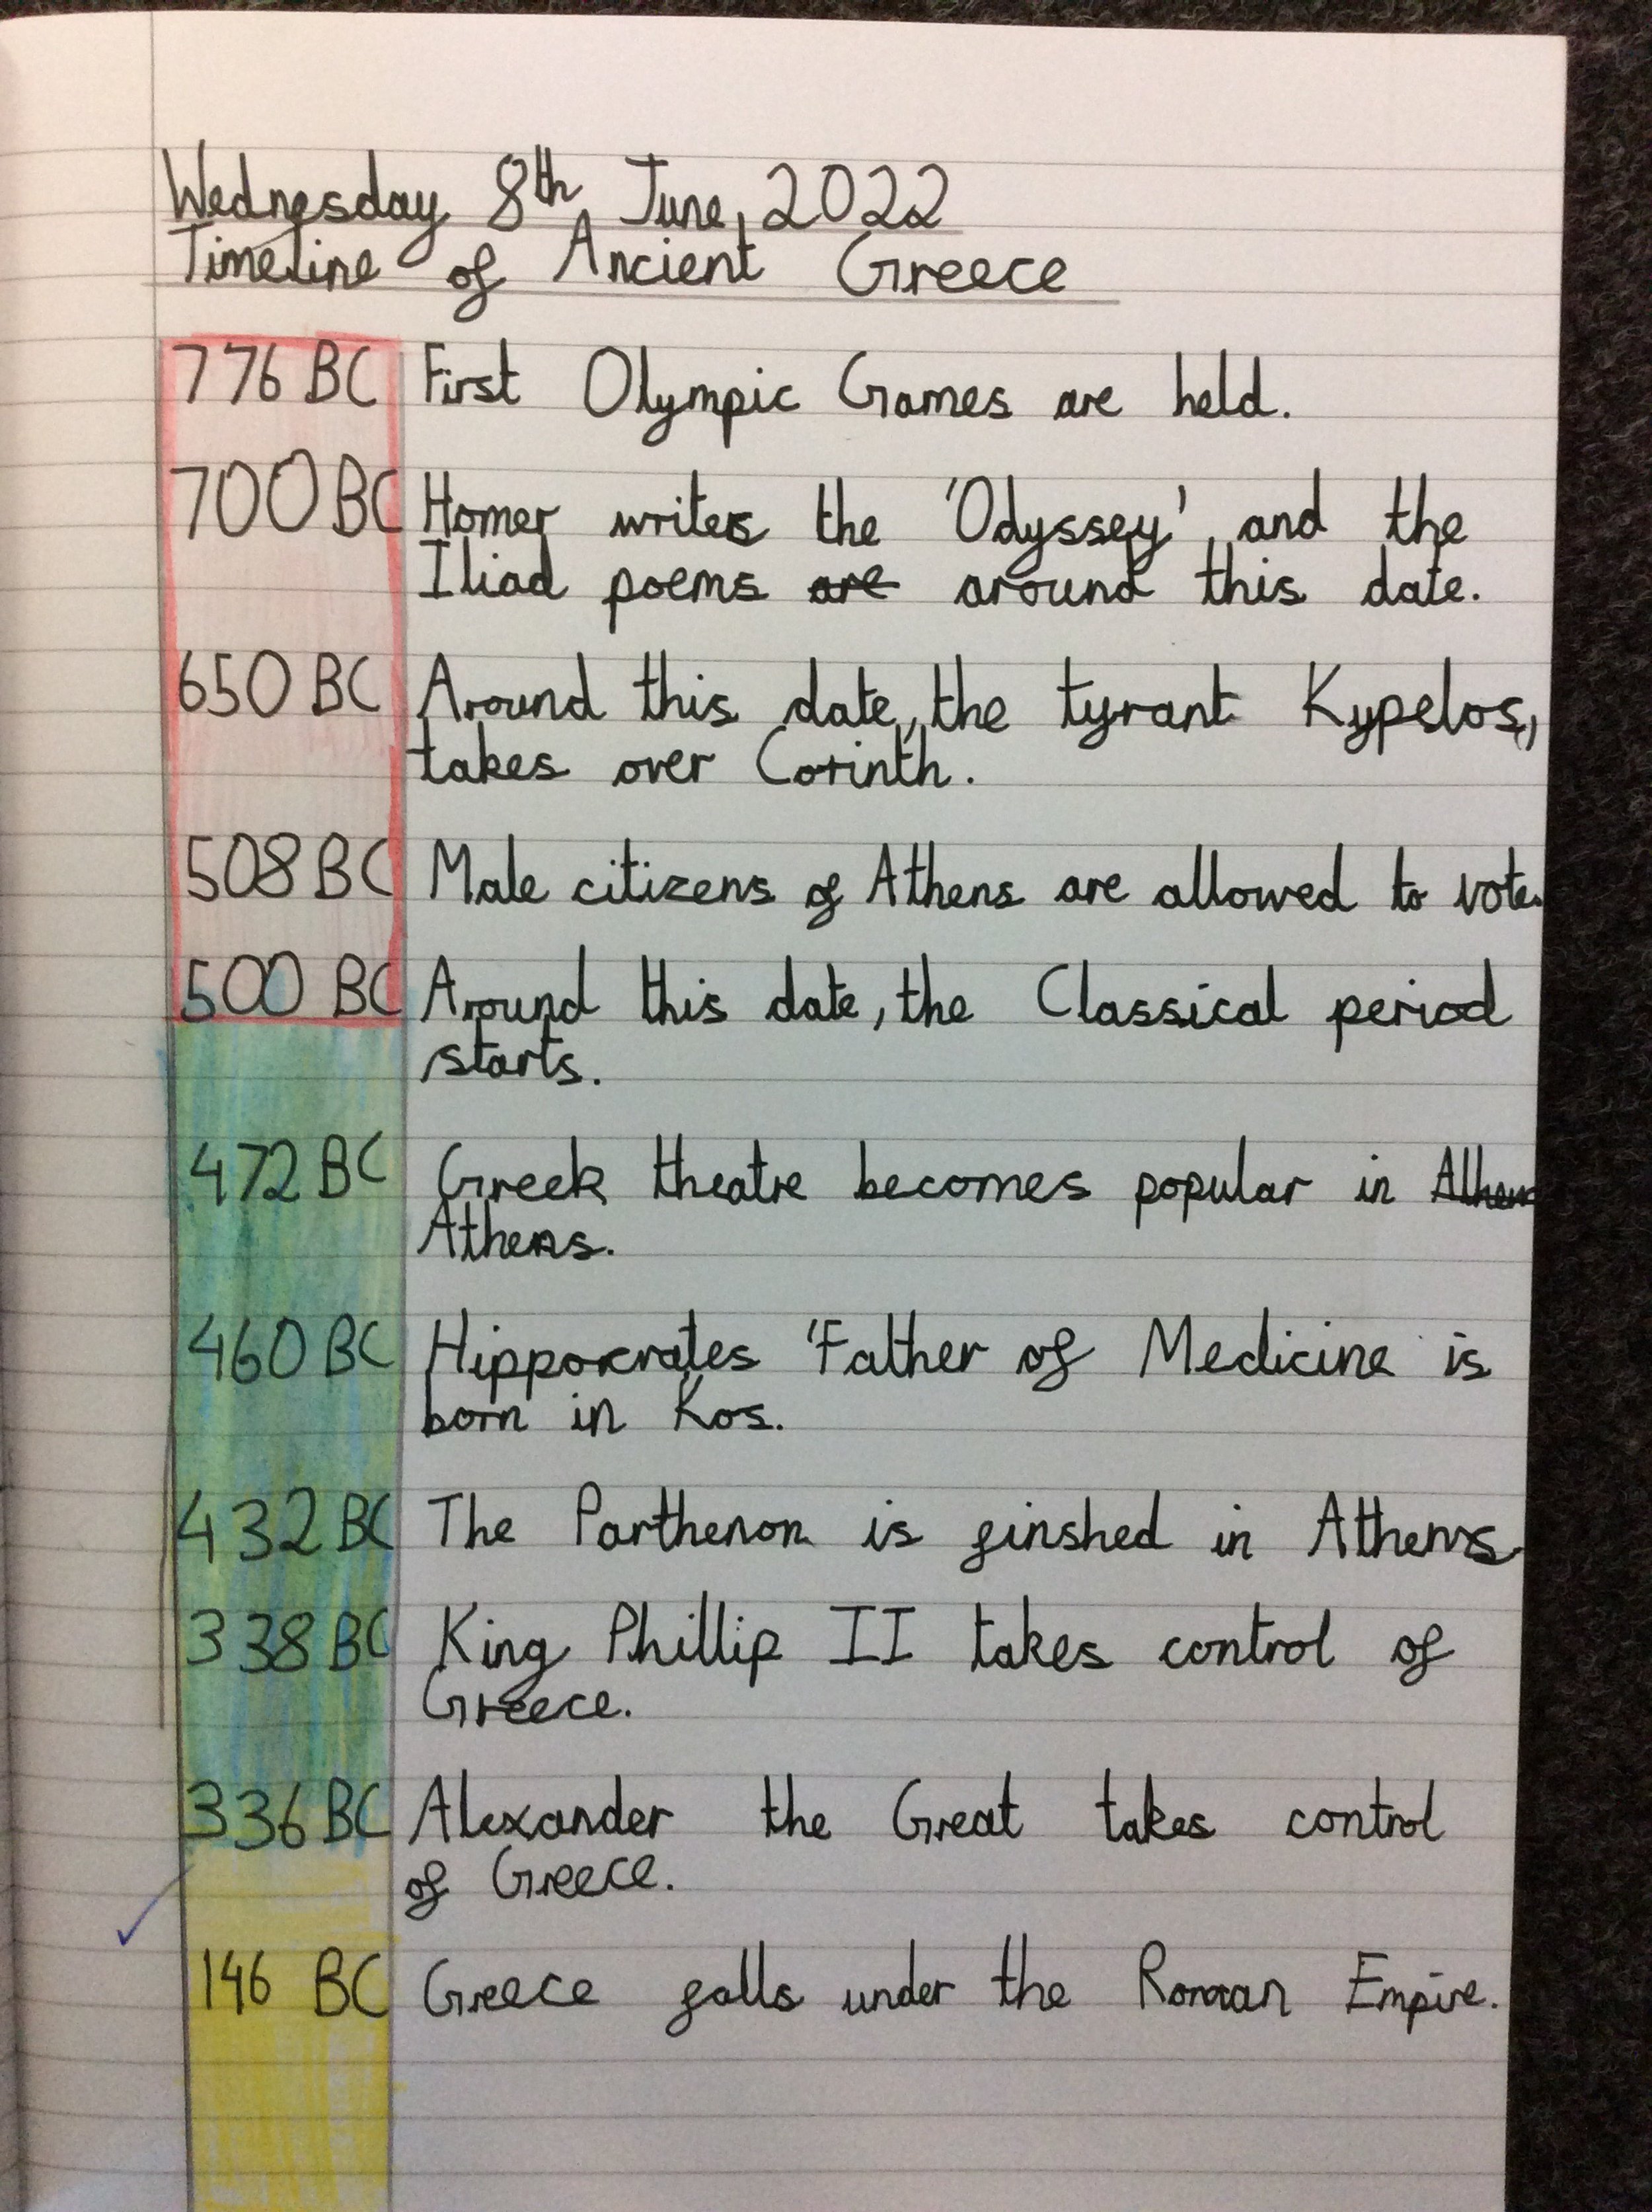 Wednesday 8th June, 2022
Timeline of Ancient Greece
776 BC First Olympic Games are held.
700 BC Homer writes the 'Odyssey' and the
Iliad poems are around this date.
650 BC Around this date, the tyrant Kypelos,
takes over Corinth.
508 BC Male citizens of Athens are allowed to vote.
500 BC Around this date, the Classical period
starts.
472 BC Greek theatre becomes popular in Athens
Athens.
460 BC Hippocrates 'Father of Medicine is
born in Kos.
432 BC The Parthenon is finshed in Athens
338 BC King Phillip II takes control of
Greece.
336 BC Alexander the Great takes control
of Greece.
146 BC Greece falls under the Roman Empire.